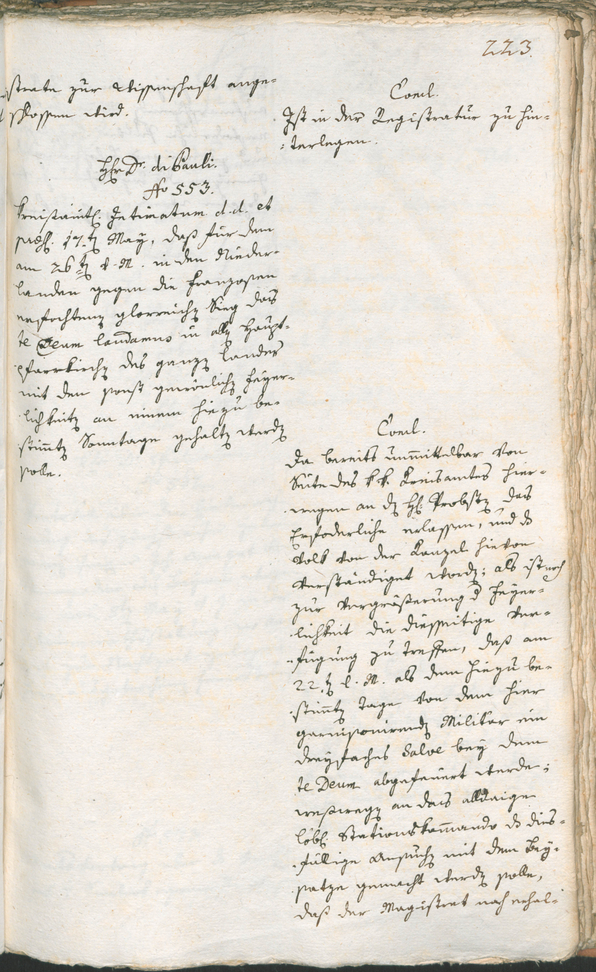 223.
strate zur Wissenschaft ange-
schlossen wird.
Concl.
Ist in der Registratur zu hin-
terlegen.
Hr. Dr. di Pauli.
No 553.
Kreisämtl. Intimatum d. d. et
præs. 17. May, daß für den
am 26 v. M. in den Nieder-
landen gegen die Franzosen
erfochtenen glorreichen Sieg das
te Deum laudamus in allen Haupt-
pfarrkirchen des ganzen Landes
mit den sonst gewönlichen Feyer-
lichkeiten an einem hiezu be-
stimmten Sonntage gehalten werden
solle.
Concl.
Da bereits unmittelbar von
Seite des k. k. Kreisamtes hier-
wegen an den H. Probsten das
Erforderliche erlassen, und das
Volk von der Kanzel hievon
verständiget worden; als ist auch
zur Vergrößerung der Feyer-
lichkeit die diesseitige Ver-
fügung zu treffen, daß am
22. l. M. als dem hiezu be-
stimmten Tage von dem hier
garnisonirenden Militar ein
dreyfaches Salve bey dem
te Deum abgefeuert werde;
weßwegen an das alldaige
löbl. Stationskommando das dies-
fällige Ansuchen mit dem Bey-
satze gemacht werden solle,
daß der Magistrat nach erhal-